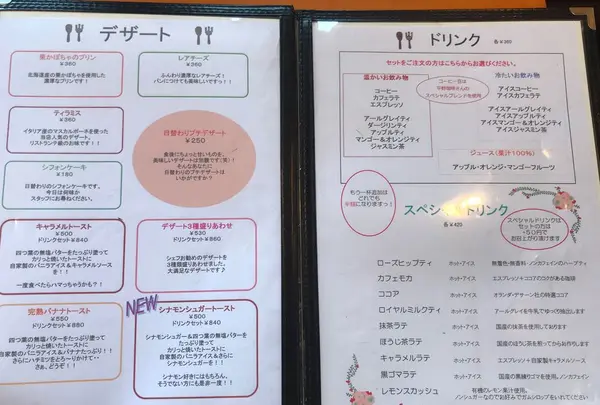 デザート
栗かぼちゃのプリン
¥360
北海道産の栗かぼちゃを使用した
濃厚なプリンです!
レアチーズ
¥360
ふんわり濃厚なレアチーズ!
パンにつけても美味しいですっ!!
ティラミス
¥360
イタリア産のマスカルポーネを使った
当店人気のデザート。
リストランテ級のお味です!
日替わりプチデザート
¥250
食後にちょっと甘いものを。
美味しいデザートは別腹です(笑)!
そんなあなたに
日替わりのプチデザートは
いかがですか?
シフォンケーキ
¥180
日替わりのシフォンケーキです。
今日は何味か
スタッフにお尋ねください。
キャラメルトースト
¥500
ドリンクセット ¥840
四つ葉の無塩バターを
たっぷり塗って
カリっと焼いたトーストに
自家製のバニラアイス&キャラメルソース
を!!
一度食べたらハマっちゃうかも?!
デザート3種盛りあわせ
¥530
ドリンクセット ¥860
シェフお勧めのデザートを
3種類盛りあわせました。
大満足なデザートです♪
完熟バナナトースト
¥550
ドリンクセット ¥880
四つ葉の無塩バターを
たっぷり塗って
カリっと焼いたトーストに
自家製のバニラアイス&バナナたっぷり!!
さらにハチミツをとろ〜りかけて・・
さぁ、どうぞ!!
NEW
シナモンシュガートースト
¥500
ドリンクセット ¥840
シナモンシュガー&四つ葉の無塩バターを
たっぷり塗って
カリっと焼いたトーストに
自家製のバニラアイス&さらに
シナモンシュガーを!!
シナモン好きにはもちろん、
そうでない方にも是非一度!!
ドリンク 各¥380
セットをご注文の方はこちらからお選びください。
温かいお飲み物
コーヒー
カフェラテ
エスプレッソ
アールグレイティ
ダージリンティ
アップルティ
マンゴー&オレンジティ
ジャスミン茶
コーヒー豆は
平野珈琲さんの
スペシャルブレンドを使用
冷たいお飲み物
アイスコーヒー
アイスカフェラテ
アイスアールグレイティ
アイスアップルティ
アイスマンゴー&オレンジティ
アイスジャスミン茶
ジュース(果汁100%)
アップル・オレンジ・マンゴーフルーツ
もう一杯追加は
どれでも
半額になりますっ!
スペシャルドリンク
各¥420
スペシャルドリンクは
セットの方は
+50円で
お召し上がり頂けます
ローズヒップティ ホット・アイス 無着色・無香料・ノンカフェインのハーブティ
カフェモカ ホット・アイス エスプレッソ+ココアのコクがある珈琲
ココア ホット・アイス オランダ・デザーン社の特選ココア
ロイヤルミルクティ ホット・アイス アールグレイを牛乳でゆっくり抽出します
抹茶ラテ ホット・アイス 国産の抹茶を使用しております
ほうじ茶ラテ ホット・アイス 国産のほうじ茶を煎ってからお作りします
キャラメルラテ ホット・アイス エスプレッソ+自家製キャラメルソース
黒ゴマラテ ホット・アイス 国産の黒練りゴマを使用。ノンカフェイン。
レモンスカッシュ ホット・アイス 有機のレモン果汁使用。
ノンシュガーなのでお好みでガムシロップをいれてください